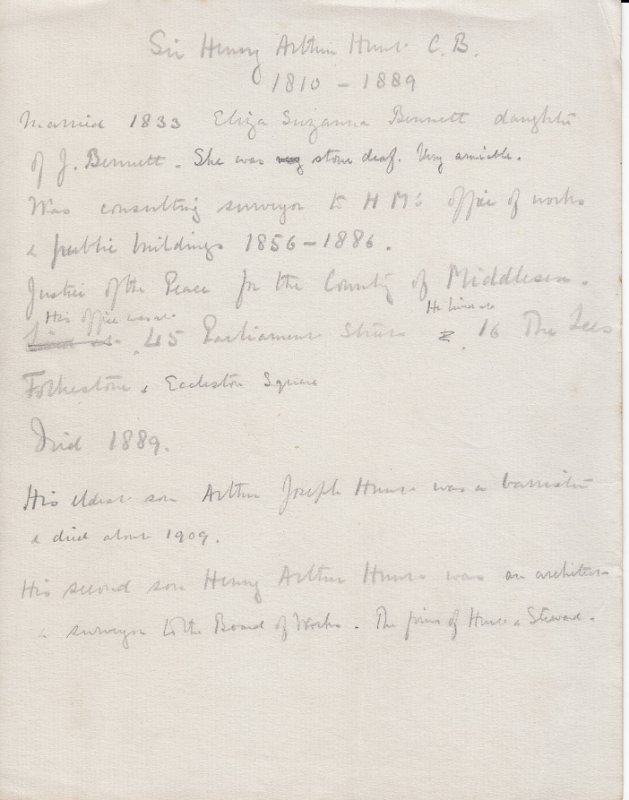 Sir Henry Arthur Hunt C.B.
1810 – 1889
Married 1833 Eliza Suzanna Bennett daughter
of J. Bennett. She was very stone deaf. Very amiable.
Was consulting surveyor to H M's office of works
& public buildings 1856–1886.
Justice of the Peace for the County of Middlesex.
His office was at He lived at
Lived at 45 Parliament Street & 16 The Lees
Folkestone & Eccleston Square
Died 1889.
His eldest son Arthur Joseph Hunt was a barrister
& died about 1909.
His second son Henry Arthur Hunt was an architect
& surveyor to the Board of Works. The firm of Hunt & Steward.